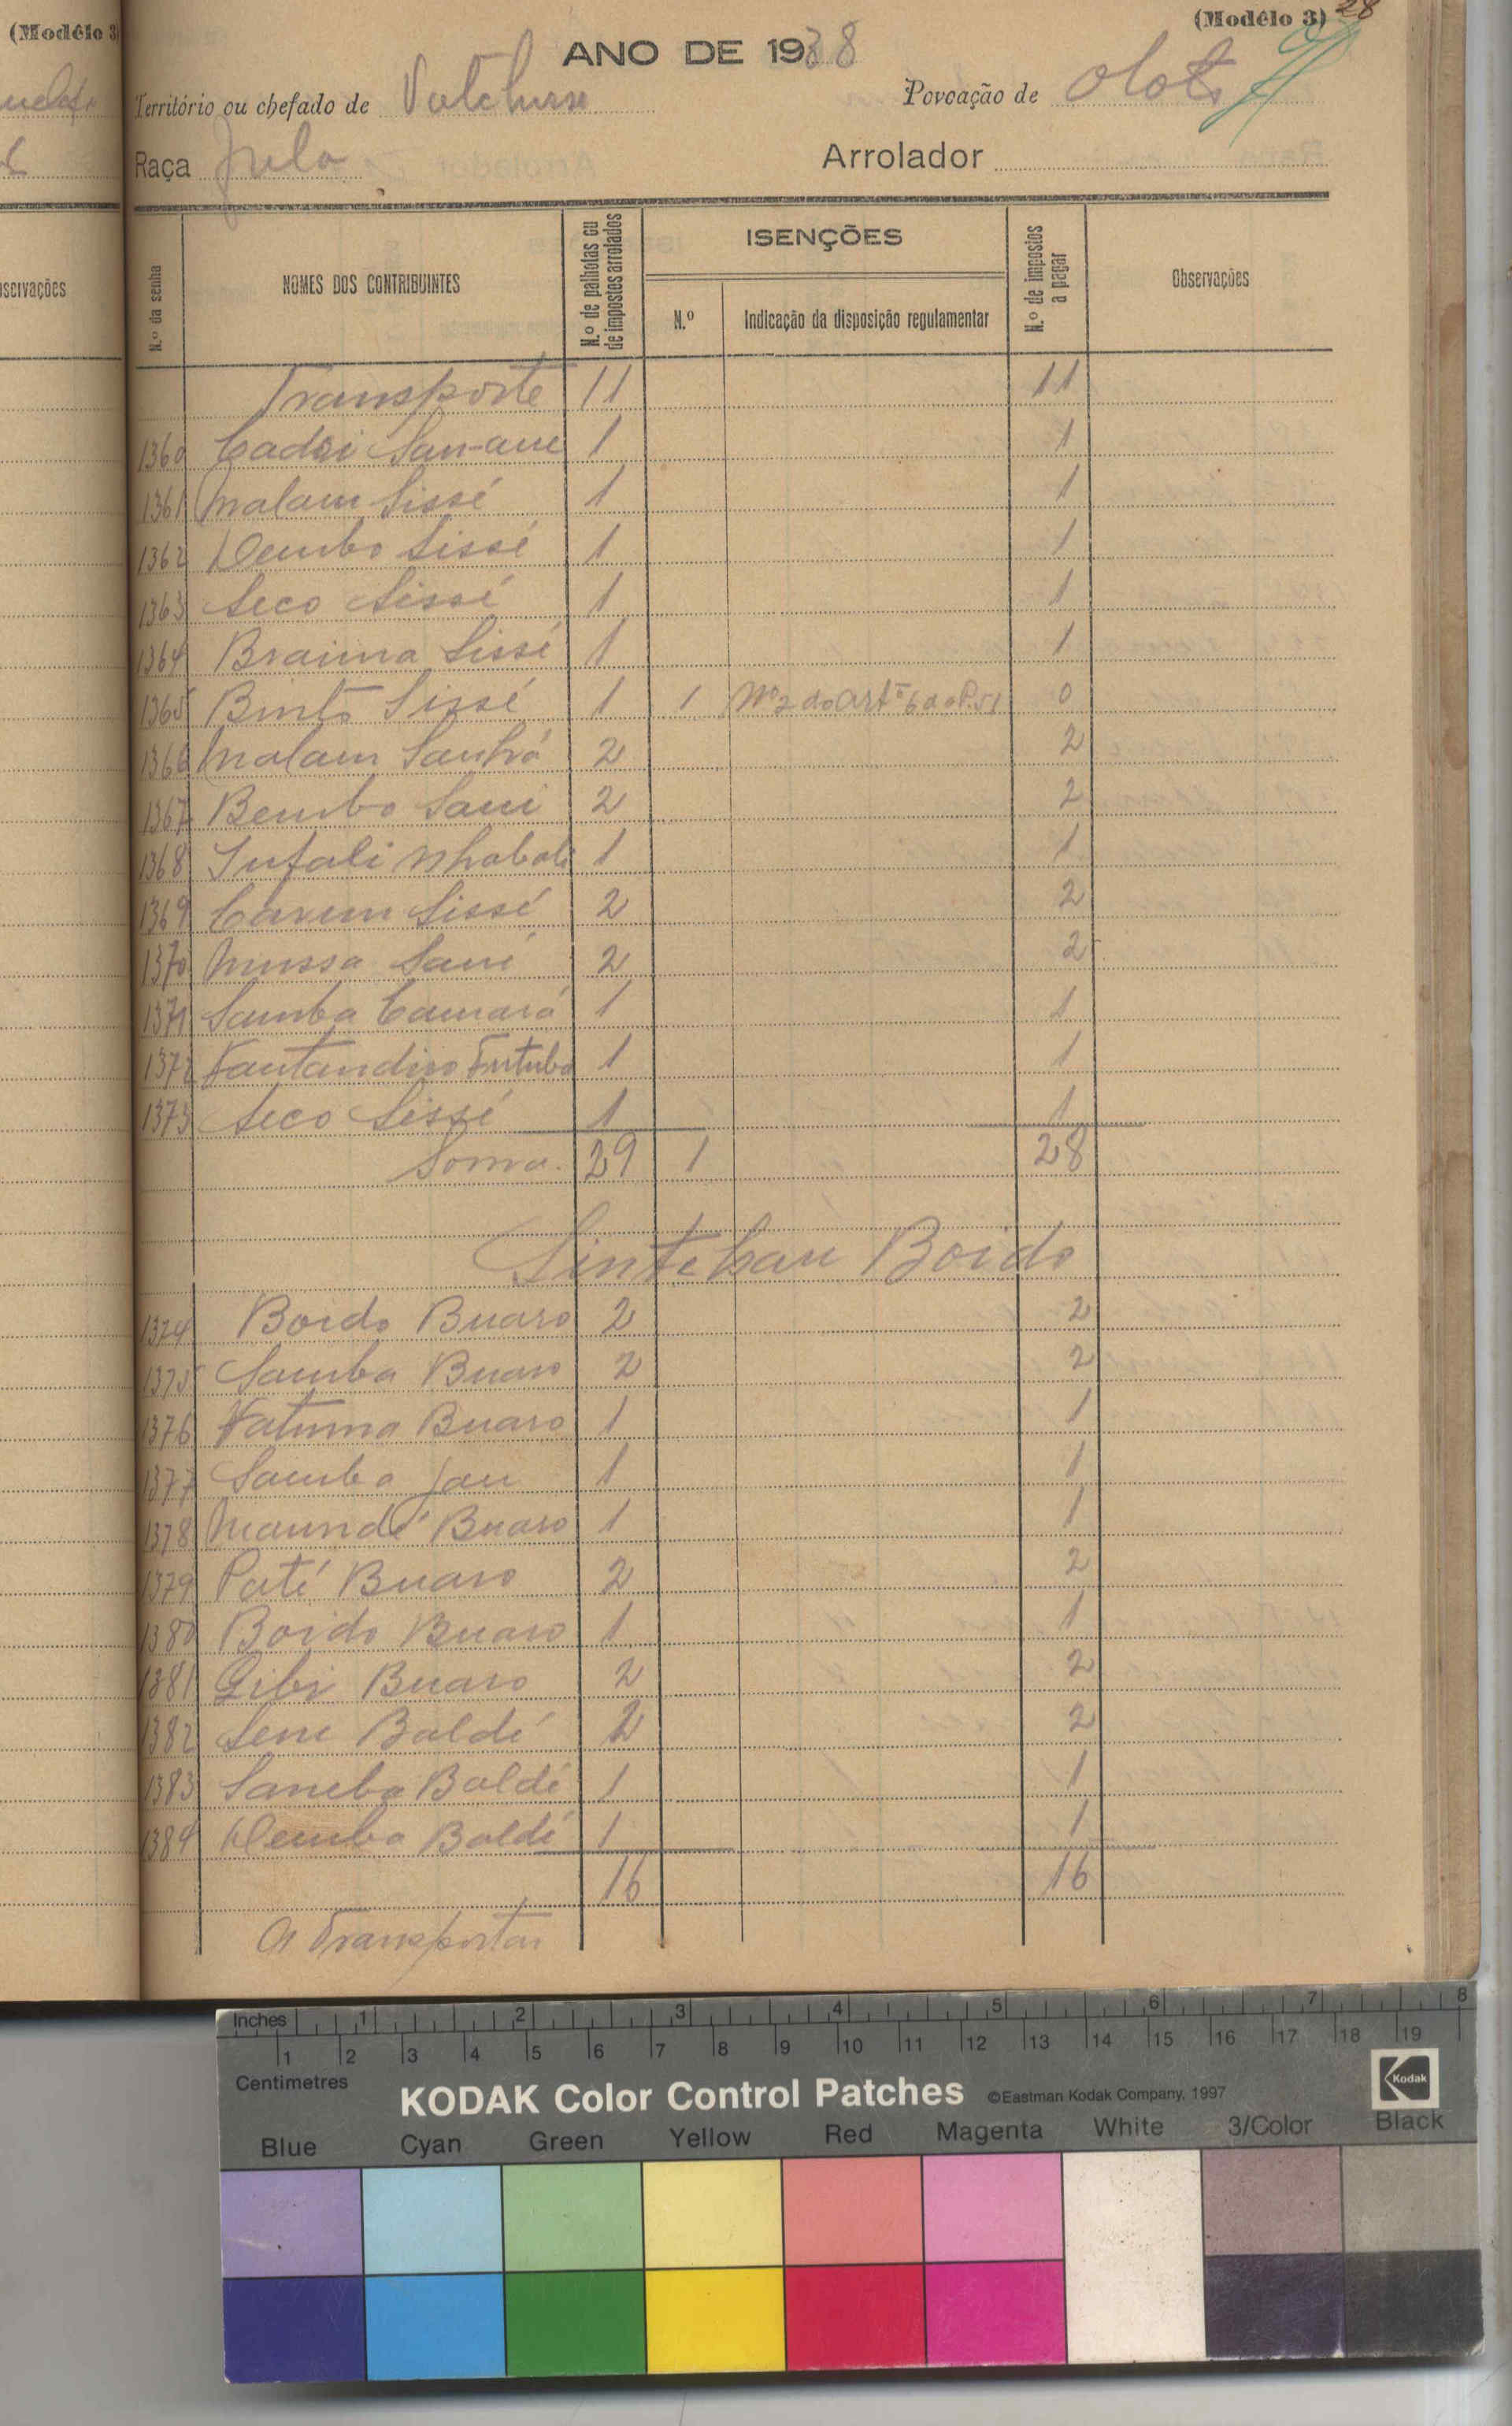 (Modêlo 3)
(Modêlo 3) 28
ANO DE 1938
Território ou chefado de
Povoação de
Raça Fula
Arrolador
servações
N.º da senha
NOMES DOS CONTRIBUINTES
N.º de palhotas ou de impostos arrolados
ISENÇÕES
N.º
Indicação da disposição regulamentar
N.º de impostos a pagar
Observações
Transporte 11 11
1360 1 1
1361 Malam Sissé 1 1
1362 Dembo Sissé 1 1
1363 Seco Sissé 1 1
1364 Braima Sissé 1 1
1365 Binto Sissé 1 1 Nº 2 do artº 6 do 0
1366 Malam Sanhá 2 2
1367 Bembo Sani 2 2
1368 1 1
1369 Carem Sissé 2 2
1370 Mussa Sani 2 2
1371 Samba Camará 1 1
1372 1 1
1373 Seco Sissé 1 1
Soma 29 1 28
Boido
1374 Boido Buaro 2 2
1375 Samba Buaro 2 2
1376 Fatuma Buaro 1 1
1377 Samba Jau 1 1
1378 Maundé Buaro 1 1
1379 Paté Buaro 2 2
1380 Boido Buaro 1 1
1381 Gibi Buaro 2 2
1382 Sene Baldé 2 2
1383 Samba Baldé 1 1
1384 Demba Baldé 1 1
16 16
A Transportar
Inches 1 2 3 4 5 6 7 8
1 2 3 4 5 6 7 8 9 10 11 12 13 14 15 16 17 18 19
Centimetres
KODAK Color Control Patches ©Eastman Kodak Company, 1997 Kodak
Blue Cyan Green Yellow Red Magenta White 3/Color Black